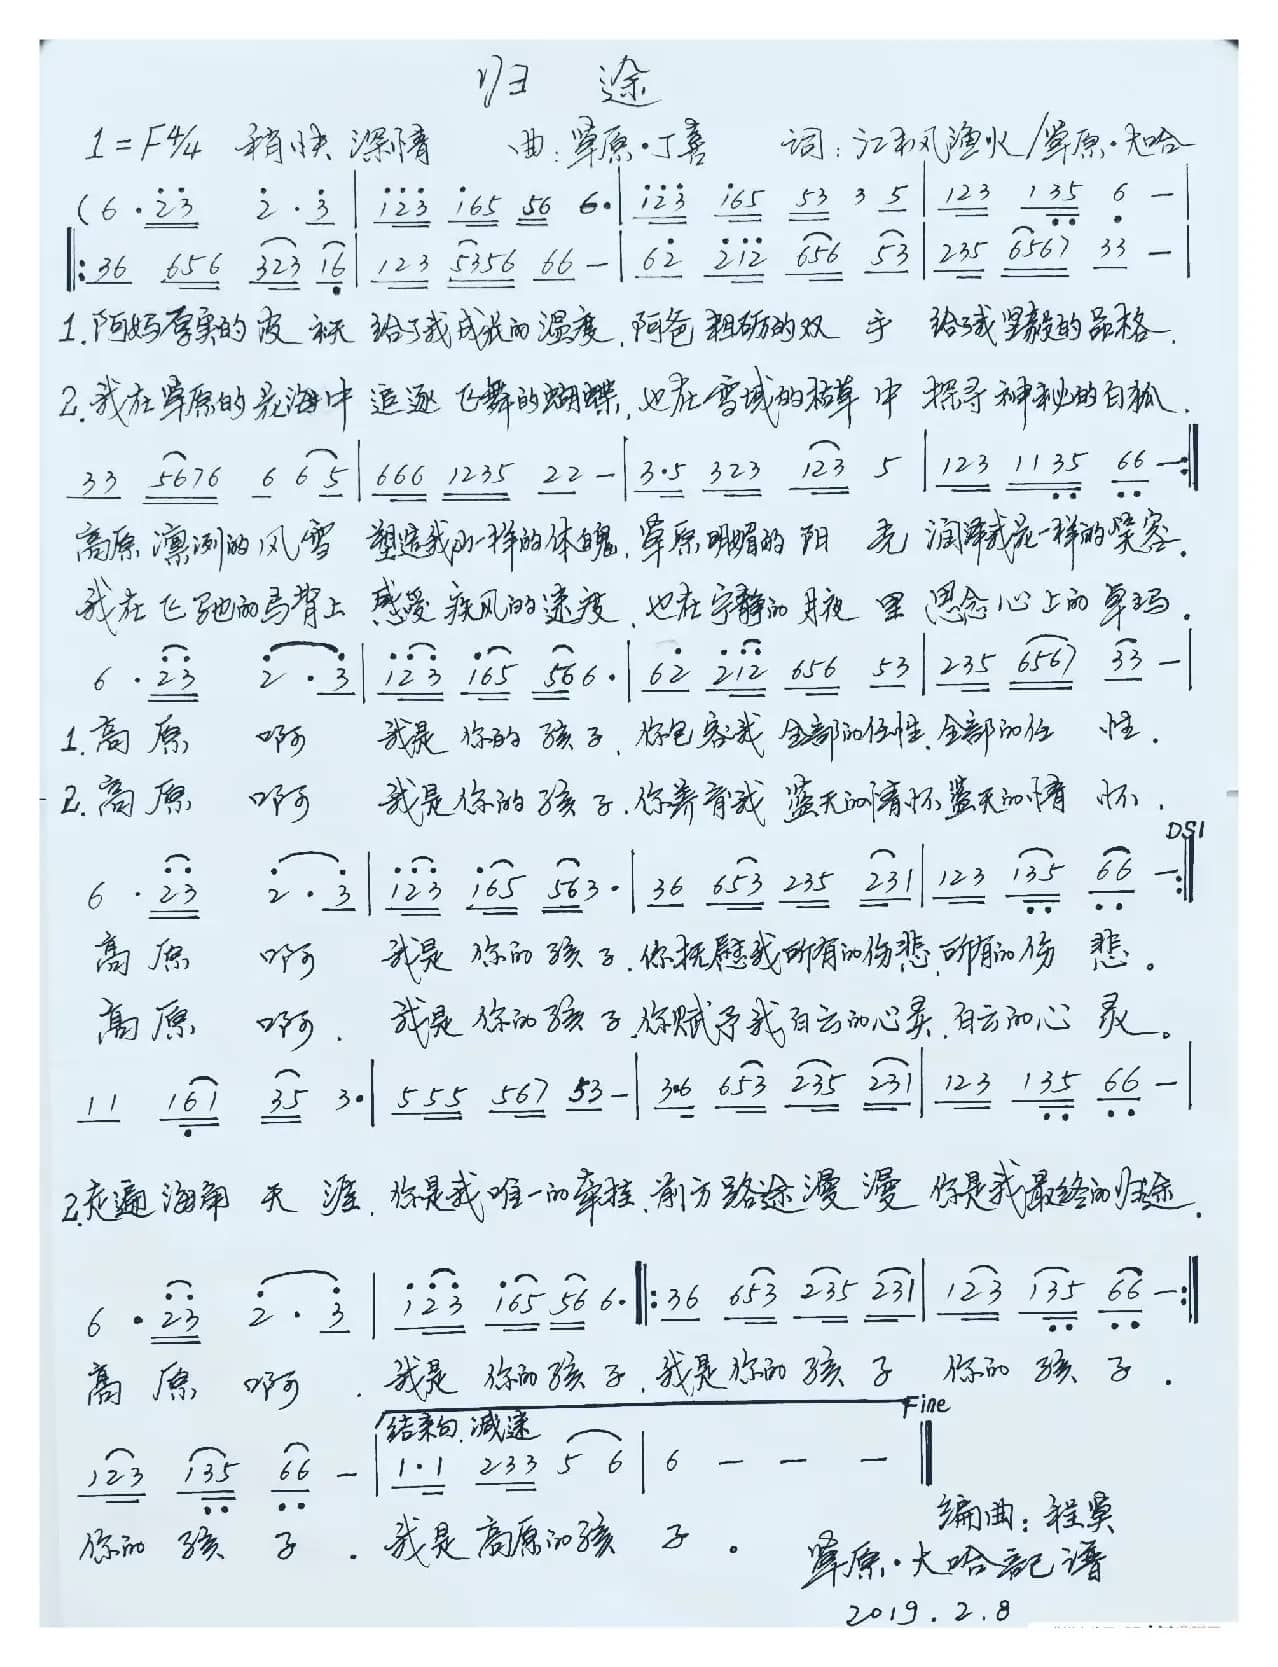 归 途
1=F4/4 稍快 深情 曲:草原·丁喜 词:江枫渔火/草原·大哈
(6·23 2·3|123 165 56 6·|123 165 53 3 5|123 135 6 —|
‖:36 656 323 16|123 5356 66 —|62 212 656 53|235 6567 33 —|
1.阿妈厚实的皮袄 给了我成长的温度,阿爸粗砺的双手 给了我坚毅的品格.
2.我在草原的花海中 追逐飞舞的蝴蝶,也在雪域的枯草中 探寻神秘的白狐.
33 5676 6 6 5|666 1235 22 —|3·5 323 123 5|123 1135 66 —:‖
高原凛冽的风雪 塑造我山一样的体魄,草原明媚的阳光 润泽我花一样的笑容.
我在飞驰的马背上 感受疾风的速度,也在宁静的月夜里 思念心上的卓玛.
6·23 2·3|123 165 56 6·|62 212 656 53|235 6567 33 —|
1.高原啊 我是你的孩子,你包容我全部的任性,全部的任性.
2.高原啊 我是你的孩子.你养育我蓝天的情怀蓝天的情怀.
DS1
6·23 2·3|123 165 563·|36 653 235 231|123 135 66 —:‖
高原啊 我是你的孩子.你抚慰我所有的伤悲,所有的伤悲。
高原啊.我是你的孩子,你赋予我白云的心灵,白云的心灵。
11 161 35 3·|555 567 53—|3·6 653 235 231|123 135 66 —|
2.走遍海角天涯,你是我唯一的牵挂.前方路途漫漫 你是我最终的归途.
6·23 2·3|123 165 56 6·‖:36 653 235 231|123 135 66—:‖
高原啊.我是你的孩子,我是你的孩子 你的孩子.
结束句.减速 Fine
123 135 66 —|1·1 233 5 6|6 — — —‖
你的孩子.我是高原的孩子。
编曲:程昊
草原·大哈記谱
2019.2.8